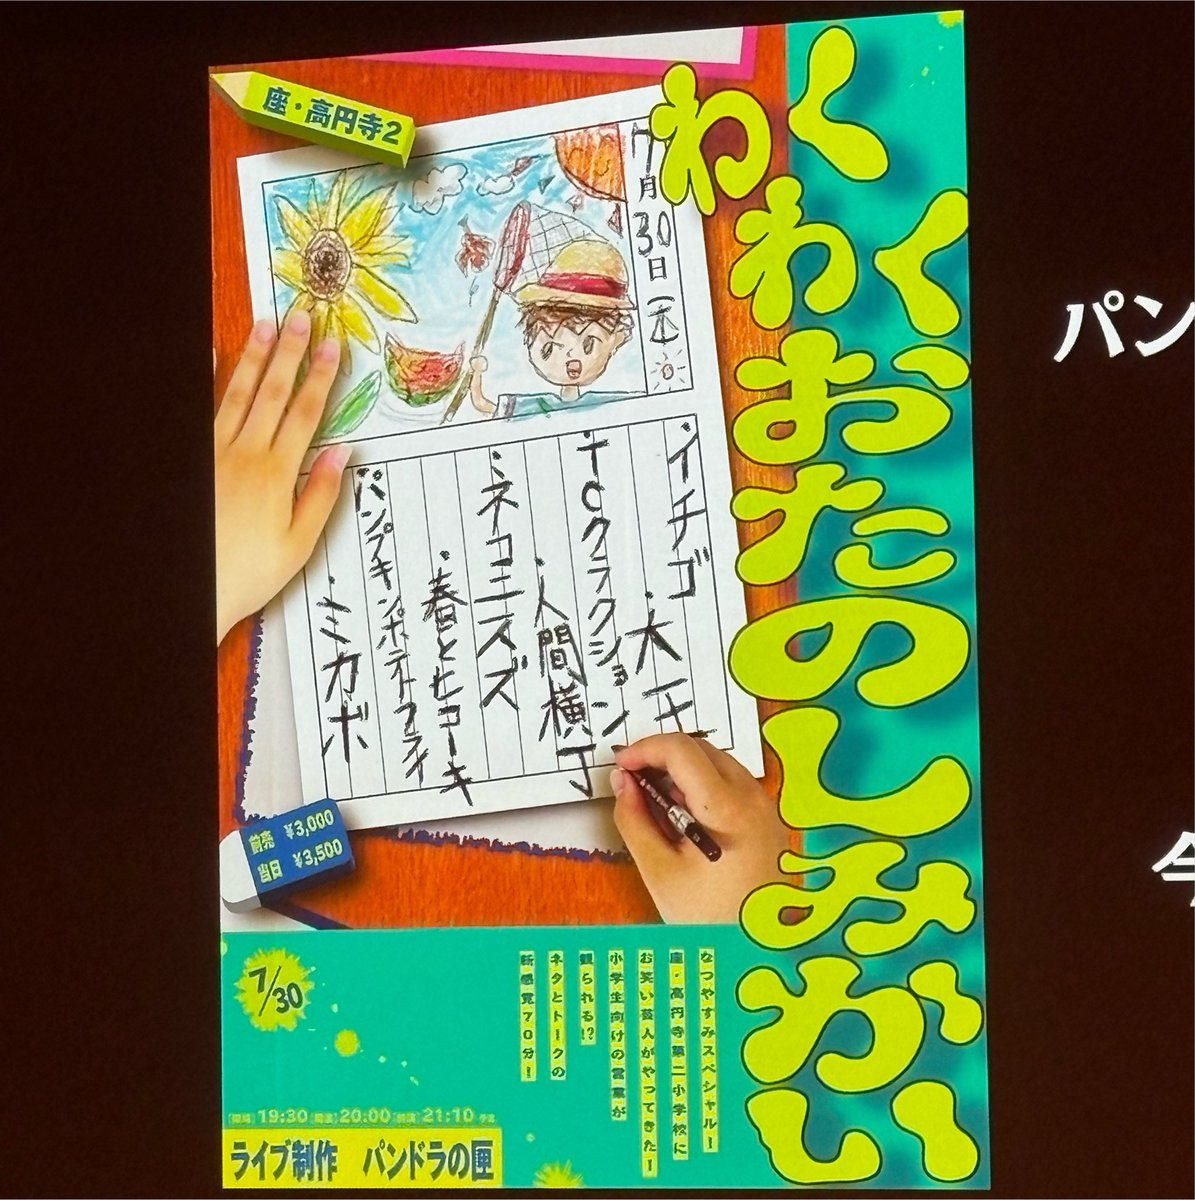 座・高円寺2
わくわくおたのしみかい
7月30日(木)
・イチゴ
・大王
・TCクラクション
・人間横丁
・ネコニスズ
・春とヒコーキ
・パンプキンポテトフライ
・ミカボ
前売 ¥3,000
当日 ¥3,500
なつやすみスペシャル!
座・高円寺第二小学校に
お笑い芸人がやってきた!
小学生向けの
観られる!?
ネタとトークの
新感覚70分!
7/30
[開場]19:30[開演]20:00[終演]21:10予定
ライブ制作 パンドラの匣
パン